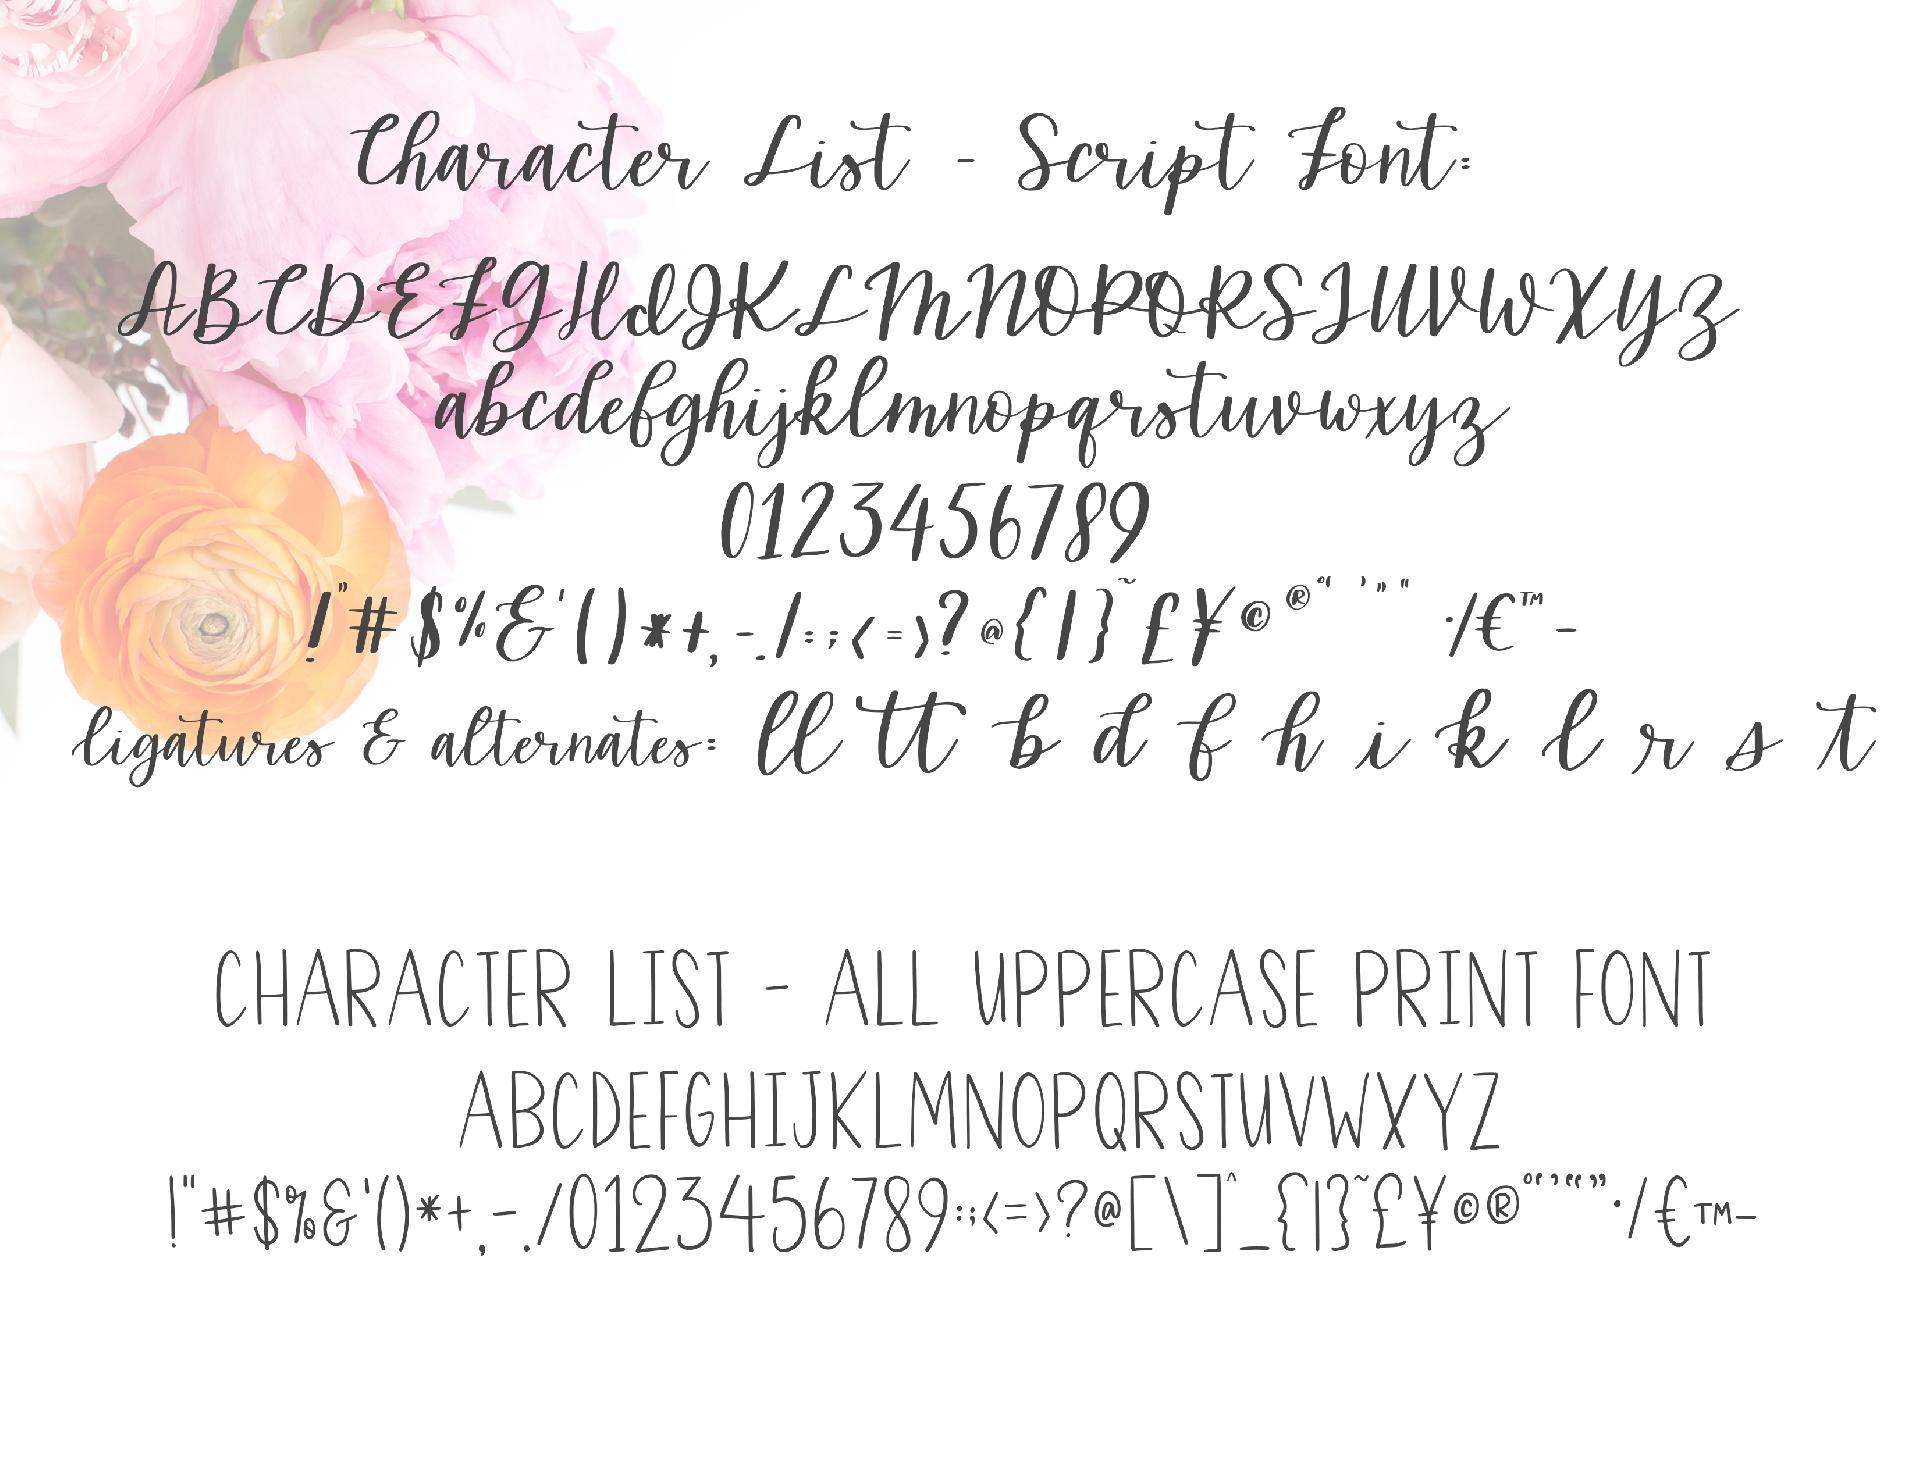 Character List - Script Font:
ABCDEFGHIJKLMNOPQRSTUVWXYZ
abcdefghijklmnopqrstuvwxyz
0123456789
!"#$%&'()*+,-./:;<=>?@{|}~£¥©®“ ’ ” “ ·/€™-
ligatures & alternates: ll tt b d f h i k l r s t
CHARACTER LIST - ALL UPPERCASE PRINT FONT
ABCDEFGHIJKLMNOPQRSTUVWXYZ
!"#$%&'()*+,-./0123456789:;<=>?@[\]^_{|}~£¥©®°‘’“”·/€™-